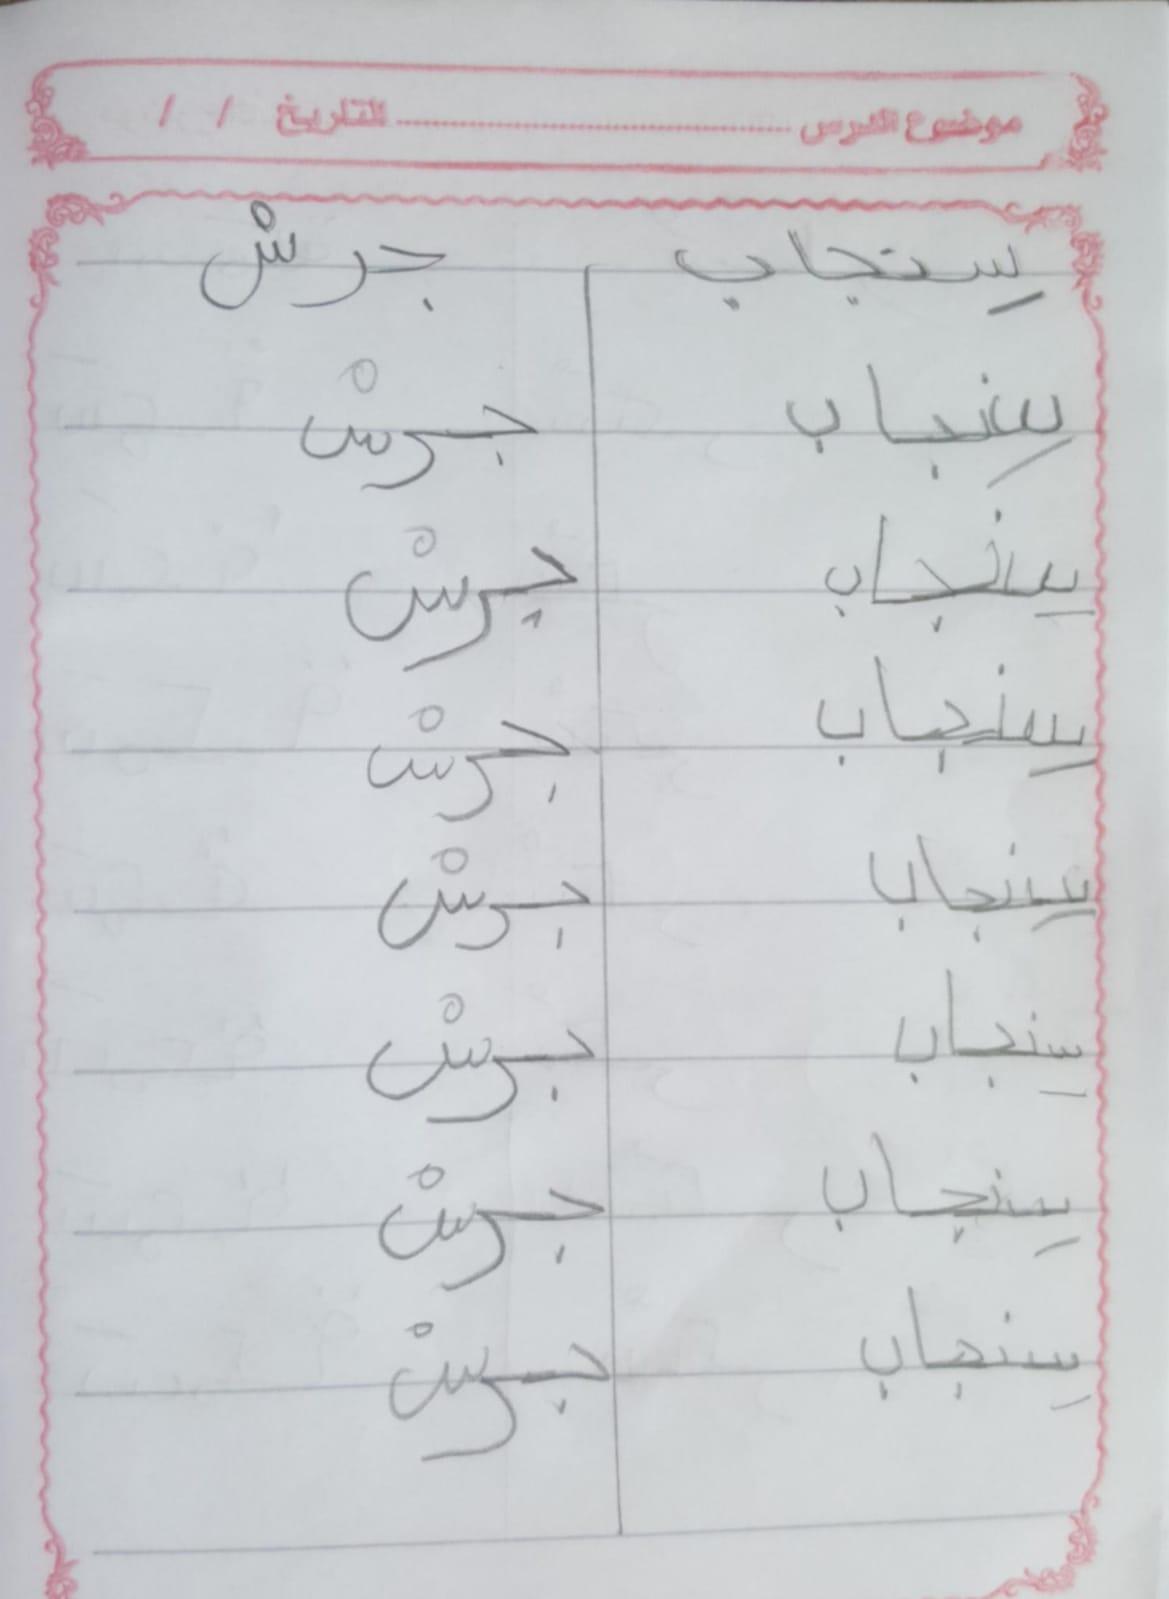 موضوع الدرس ........................ التاريخ / /
سِنجاب جرش
سِنجاب جرش
سِنجاب جرش
سِنجاب جرش
سِنجاب جرش
سِنجاب جرش
سِنجاب جرش
سِنجاب جرش